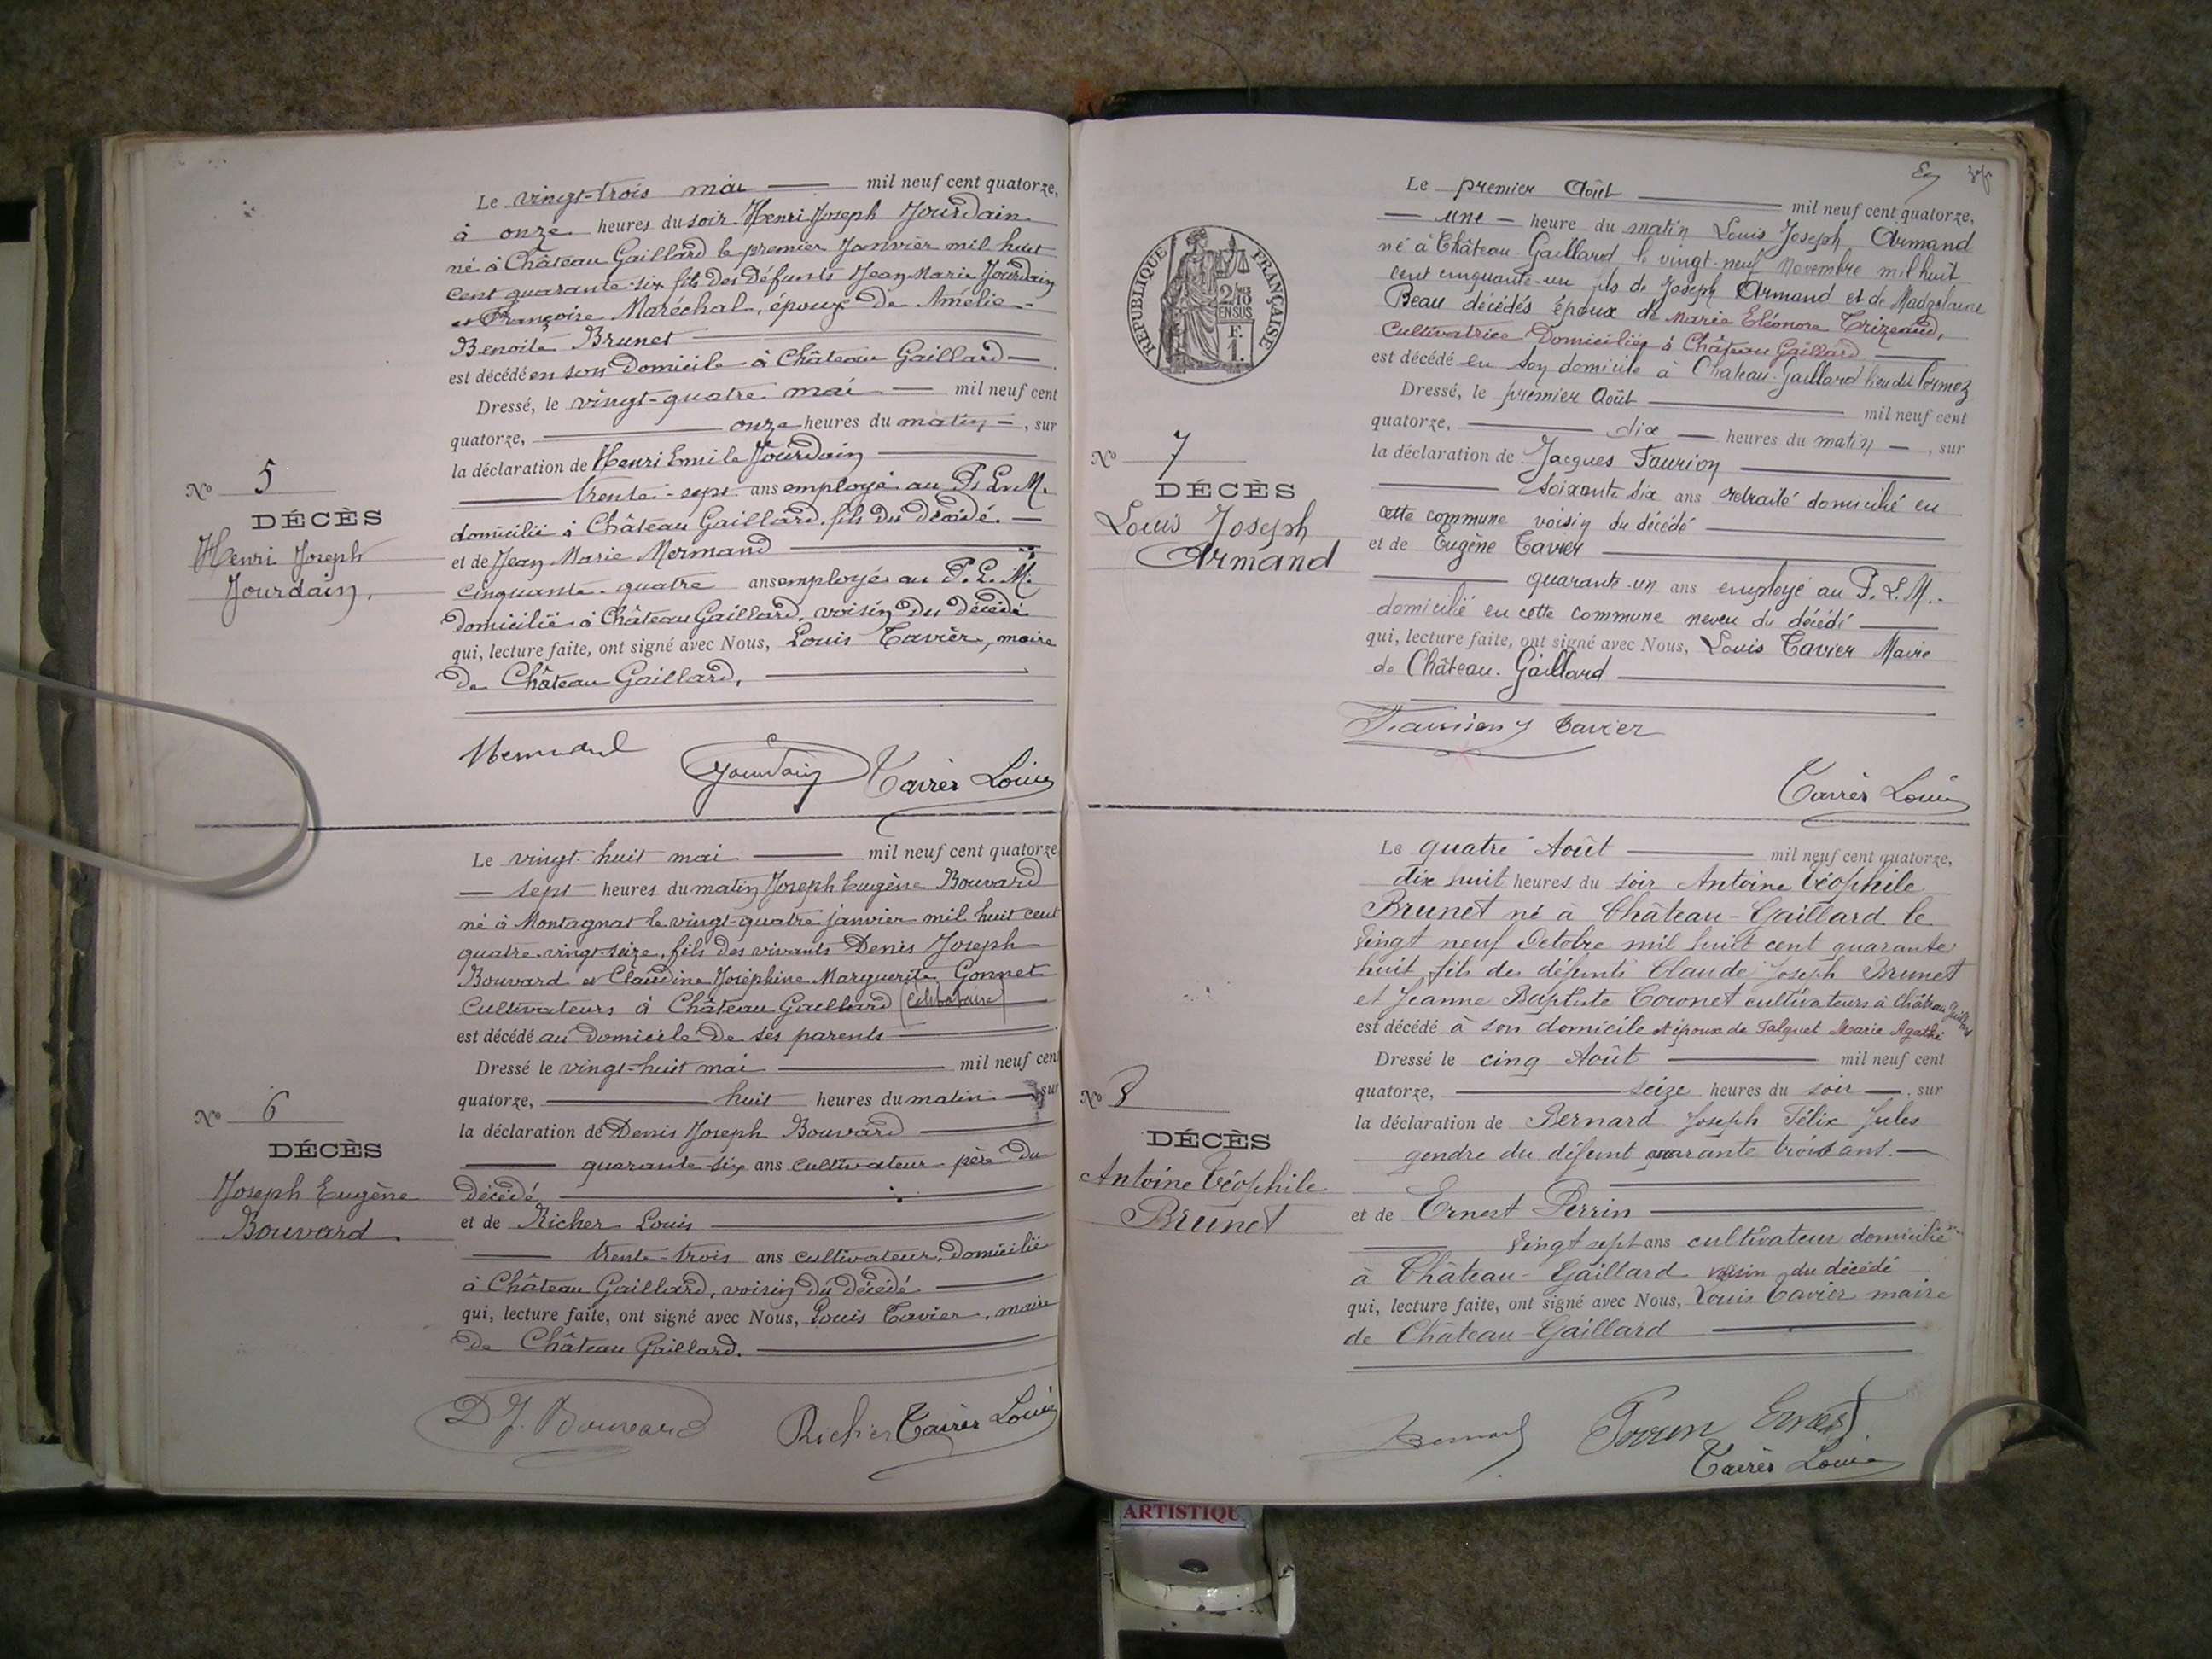 Le vingt-trois mai mil neuf cent quatorze,
à onze heures du soir Henri Joseph Jourdain
né à Château Gaillard le premier Janvier mil huit
cent quarante-six fils des défunts Jean Marie Jourdain
et Françoise Maréchal, époux de Amélie-
Benoite Brunet
est décédé en son domicile à Château Gaillard
Dressé, le vingt-quatre mai mil neuf cent
quatorze, onze heures du matin, sur
la déclaration de Henri Emile Jourdain
trente-sept ans employé au P. L. M.
domicilié à Château Gaillard, fils du décédé
et de Jean Marie Mermand
cinquante-quatre ans employé au P. L. M.
domicilié à Château Gaillard, voisin du décédé
qui, lecture faite, ont signé avec Nous, Louis Tavier, maire
de Château Gaillard.
No 5
DÉCÈS
Henri Joseph
Jourdain,
Mermand Jourdain Tavier Louis
Le vingt-huit mai mil neuf cent quatorze
sept heures du matin Joseph Eugène Bouvard
né à Montagnat le vingt-quatre janvier mil huit cent
quatre-vingt-seize, fils des vivants Denis Joseph
Bouvard et Claudine Joséphine Marguerite Gonnet
Cultivateurs à Château Gaillard (célibataire)
est décédé au domicile de ses parents
Dressé le vingt-huit mai mil neuf cent
quatorze, huit heures du matin sur
la déclaration de Denis Joseph Bouvard
quarante-six ans cultivateur père du
décédé
et de Richer Louis
trente-trois ans cultivateur, domicilié
à Château Gaillard, voisin du décédé
qui, lecture faite, ont signé avec Nous, Louis Tavier, maire
de Château Gaillard.
No 6
DÉCÈS
Joseph Eugène
Bouvard
D J. Bouvard Richer Tavier Louis
Le premier Août mil neuf cent quatorze,
une heure du matin Louis Joseph Armand
né à Château-Gaillard le vingt-neuf Novembre mil huit
cent cinquante-un fils de Joseph Armand et de Madgelaine
Beau décédés époux de Marie Eléonore Trizeaud,
Cultivatrice Domiciliée à Château Gaillard
est décédé en son domicile à Château-Gaillard lieu dit Cormoz
Dressé, le premier Août mil neuf cent
quatorze, dix heures du matin, sur
la déclaration de Jacques Faurion
soixante six ans retraité domicilié en
cette commune voisin du décédé
et de Eugène Tavier
quarante-un ans employé au P. L. M.
domicilié en cette commune neveu du décédé
qui, lecture faite, ont signé avec Nous, Louis Tavier Maire
de Château-Gaillard
RÉPUBLIQUE FRANÇAISE
2/10 EN SUS
F. 1.
No 7
DÉCÈS
Louis Joseph
Armand
Faurion Tavier
Tavier Louis
Le quatre Août mil neuf cent quatorze,
dix huit heures du soir Antoine Téophile
Brunet né à Château-Gaillard le
vingt neuf Octobre mil huit cent quarante
huit, fils des défunts Claude Joseph Brunet
et Jeanne Baptiste Coronet cultivateurs à Château Gaillard
est décédé à son domicile et époux de Falquet Marie Agathe
Dressé le cinq Août mil neuf cent
quatorze, seize heures du soir, sur
la déclaration de Bernard Joseph Félix Jules
gendre du défunt quarante trois ans.
et de Ernest Perrin
vingt sept ans cultivateur domicilié
à Château-Gaillard voisin du décédé
qui, lecture faite, ont signé avec Nous, Louis Tavier maire
de Château-Gaillard
No 8
DÉCÈS
Antoine Téophile
Brunet
Bernard Perrin Ernest
Tavier Louis
ARTISTIQU